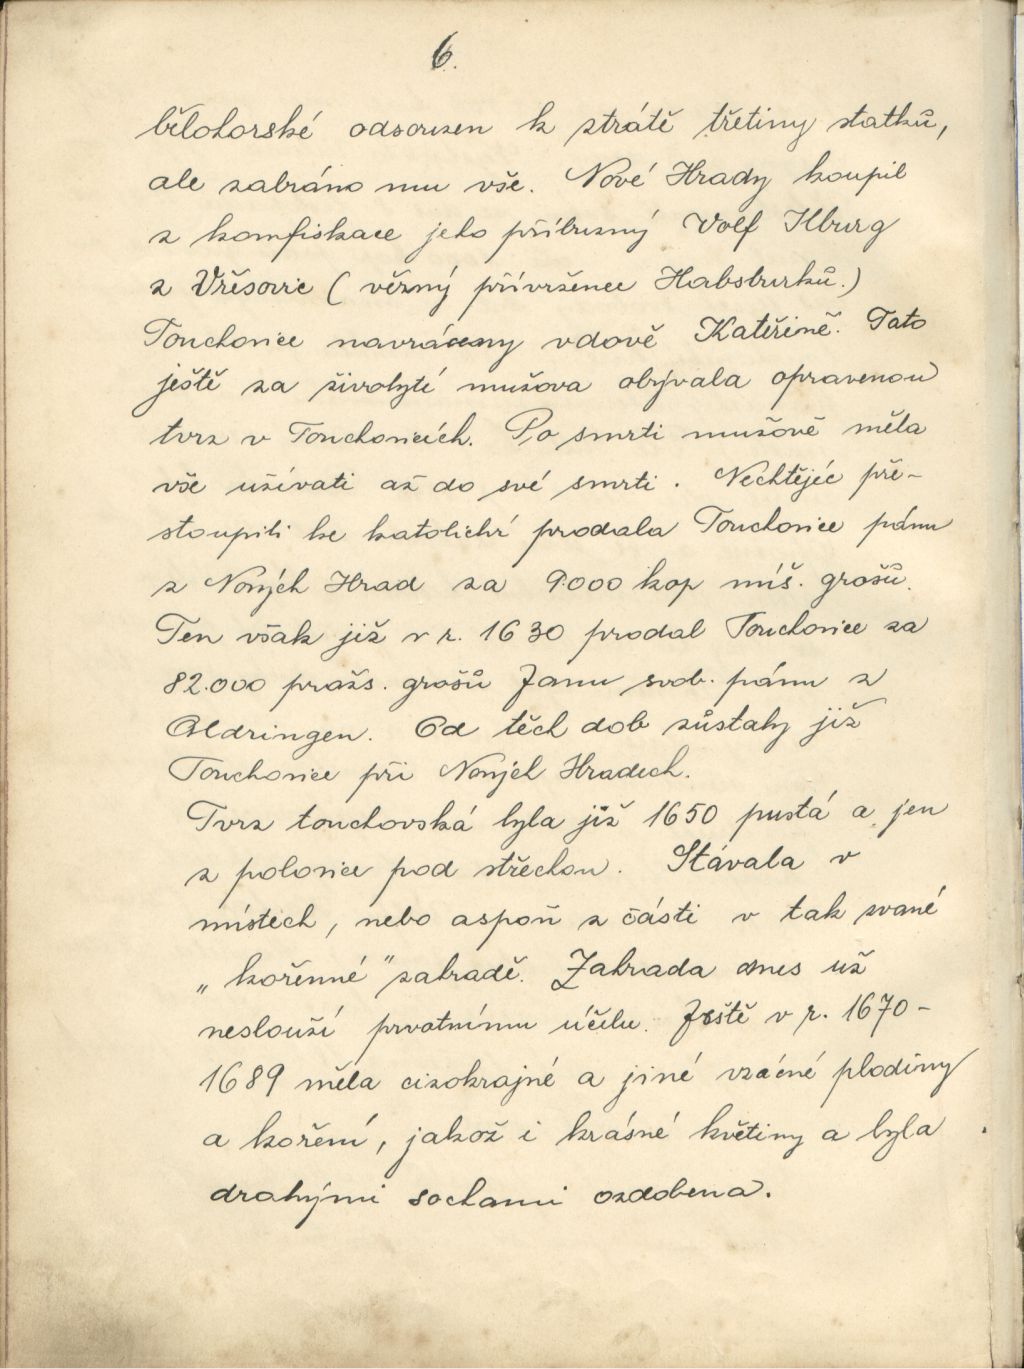 6.
bělohorské odsouzen k ztrátě třetiny statků,
ale zabráno mu vše. Nové Hrady koupil
z komfiskace jeho příbuzný Volf Ilburg
z Vřesovic (věrný přívrženec Habsburků.)
Touchovice navráceny vdově Kateřině. Tato
ještě za živobytí mužova obývala opravenou
tvrz v Touchovicích. Po smrti mužově měla
vše užívati až do své smrti. Nechtějíc pře-
stoupiti ke katolictví prodala Touchovice pánu
z Nových Hrad za 9.000 kop míš. grošů.
Ten však již v r. 1630 prodal Touchovice za
82.000 pražs. grošů Janu svob. pánu z
Aldringen. Od těch dob zůstaly již
Touchovice při Nových Hradech.
Tvrz touchovská byla již 1650 pustá a jen
z polovice pod střechou. Stávala v
místech, nebo aspoň z části v tak zvané
„kořenné" zahradě. Zahrada dnes už
neslouží prvotnímu účelu. Ještě v r. 1670-
1689 měla cizokrajné a jiné vzácné plodiny
a koření, jakož i krásné květiny a byla
drahými sochami ozdobena.